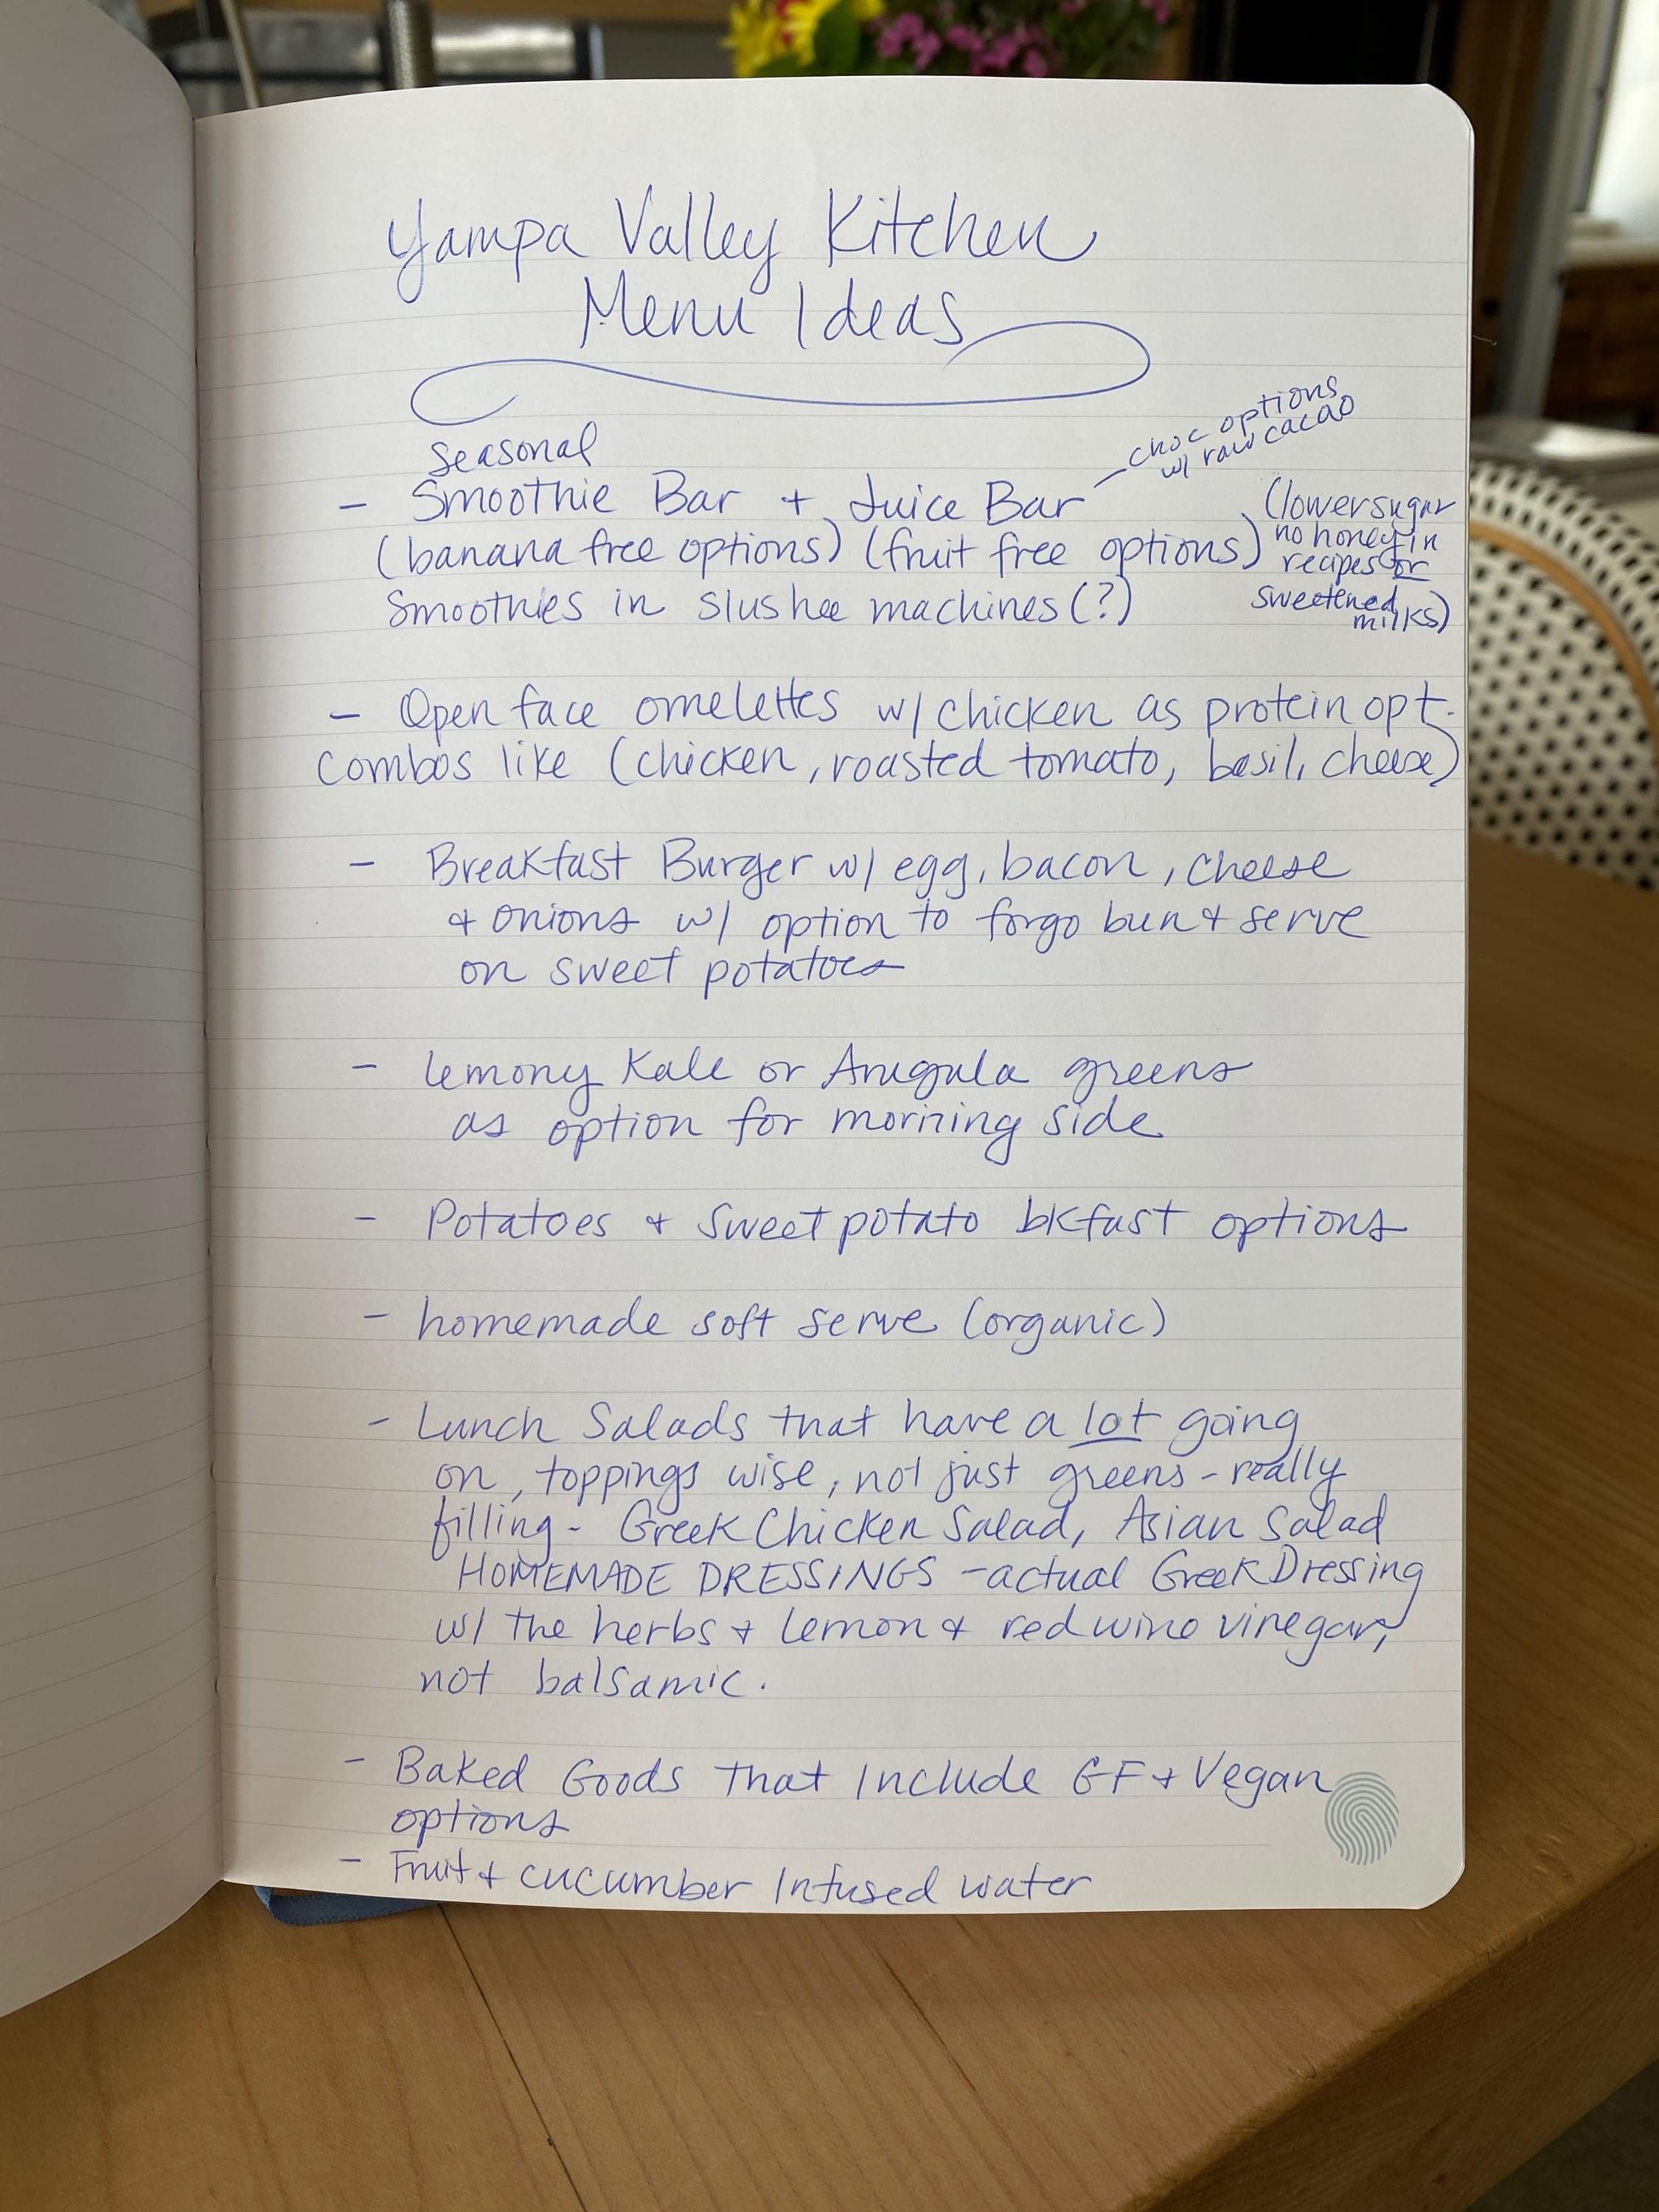 Yampa Valley Kitchen
Menu Ideas
seasonal
- Smoothie Bar + Juice Bar
choc options
w/ raw cacao
(banana free options) (fruit free options)
(lower sugar
no honey in
recipes or
sweetened
milks)
Smoothies in slushee machines (?)
- Open face omelettes w/ chicken as protein opt.
Combos like (chicken, roasted tomato, basil, cheese)
- Breakfast Burger w/ egg, bacon, cheese
+ onions w/ option to forgo bun + serve
on sweet potatoes
- Lemony Kale or Arugula greens
as option for morning side
- Potatoes + Sweet potato bkfast options
- homemade soft serve (organic)
- Lunch Salads that have a lot going
on, toppings wise, not just greens - really
filling - Greek Chicken Salad, Asian Salad
HOMEMADE DRESSINGS - actual Greek Dressing
w/ the herbs + lemon + red wine vinegar,
not balsamic.
- Baked Goods that Include GF + Vegan
options
- Fruit + cucumber Infused water